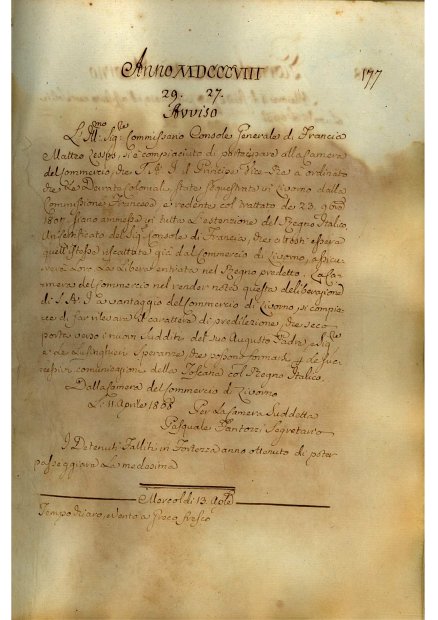 Anno MDCCCVIII
177
29. 27.
Avviso
L'Ill.mo Sig.re Commissario Console Generale di Francia
Matteo Lesseps, si è compiaciuto di partecipare alla Camera
del Commercio, che S. A. I. il Principe Vice Re à ordinato
che le Derrate Coloniali state sequestrate in Livorno dalla
Commissione Francese e redente col trattato de 23. 9bre
1807. siano ammesse in tutta l'estenzione del Regno Italico.
Un Certificato del Sig. Console di Francia, che attesti essere
quell'istesse riscattate già dal Commercio di Livorno, assicu-
rerà loro la libera entrata nel Regno predetto. La Ca-
mera del Commercio nel render nota questa deliberazione
di S. A. I. a vantaggio del Commercio di Livorno, si compia-
ce di far rilevare il carattere di predilezione, che seco
porta verso i nuovi Sudditi del suo Augusto Padre, e Sig.re
e le lusinghiere Speranze che possono formarsi di suc-
cessive comunicazioni della Toscana col Regno Italico.
Dalla Camera del Commercio di Livorno
Li 11 Aprile 1808
Per la Camera Suddetta
Pasquale Pantozzi Segretario
I Detenuti Falliti in Fortezza anno ottenuto di poter
passeggiare la medesima
Mercoldi 13. Aple
Tempo Chiaro, e Vento a Greco fresco